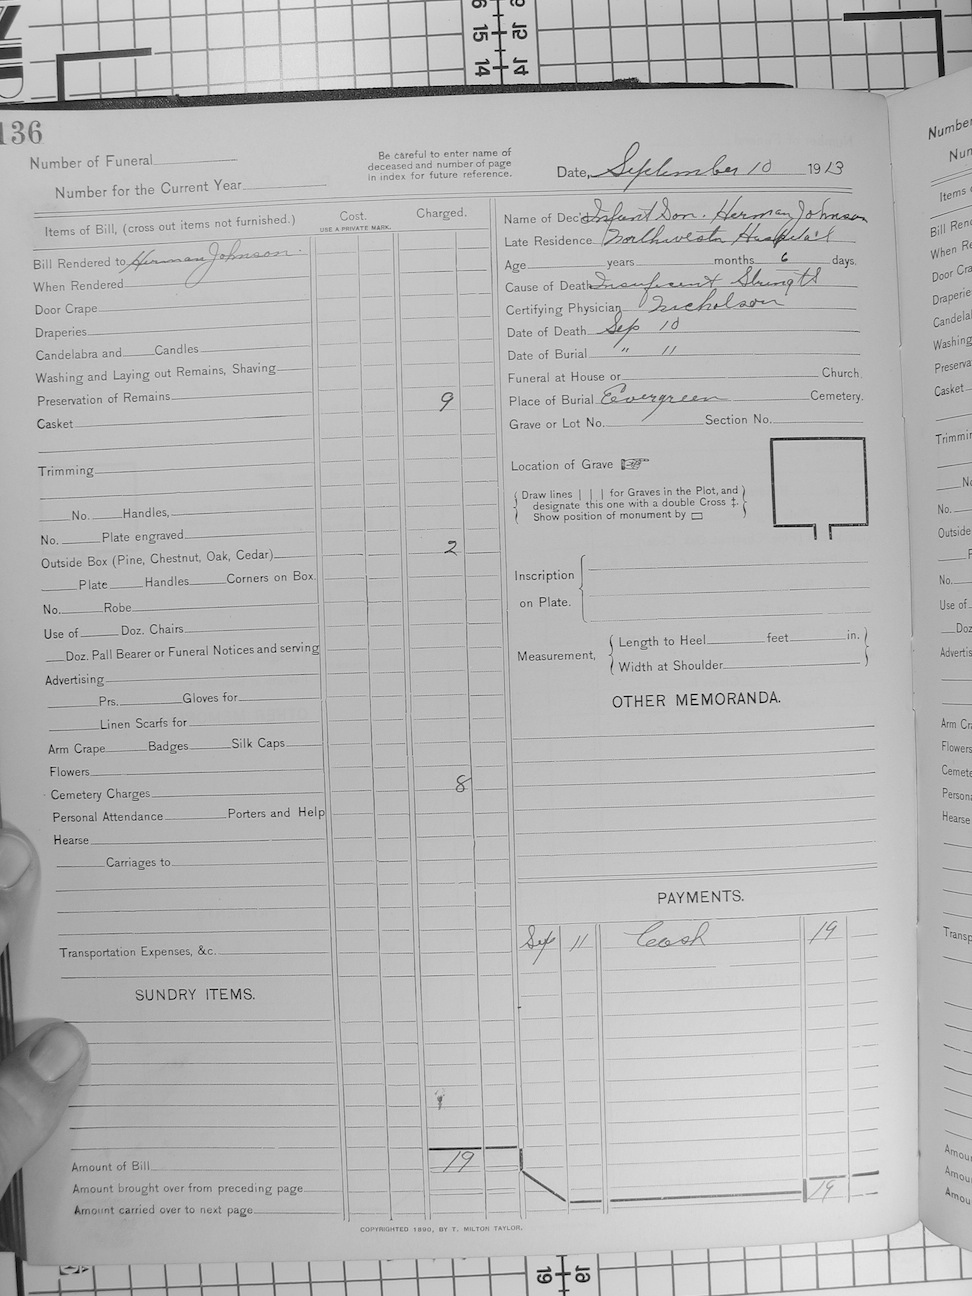 136
Number of Funeral
Number for the Current Year
Be careful to enter name of
deceased and number of page
in index for future reference.
Date, September 10 1913
Items of Bill, (cross out items not furnished.)
Cost.
USE A PRIVATE MARK.
Charged.
Bill Rendered to Herman Johnson.
When Rendered
Door Crape
Draperies
Candelabra and Candles
Washing and Laying out Remains, Shaving
Preservation of Remains
9
Casket
Trimming
No. Handles,
No. Plate engraved
Outside Box (Pine, Chestnut, Oak, Cedar) 2
Plate Handles Corners on Box.
No. Robe
Use of Doz. Chairs
Doz. Pall Bearer or Funeral Notices and serving
Advertising
Prs. Gloves for
Linen Scarfs for
Arm Crape Badges Silk Caps
Flowers
Cemetery Charges 8
Personal Attendance Porters and Help
Hearse
Carriages to
Transportation Expenses, &c.
SUNDRY ITEMS.
Amount of Bill 19
Amount brought over from preceding page
Amount carried over to next page
Name of Dec'd Infant Son. Herman Johnson
Late Residence Northwestn Hospital
Age years months 6 days.
Cause of Death Insuficent Strength
Certifying Physician Nicholson
Date of Death Sep 10
Date of Burial " 11
Funeral at House or Church.
Place of Burial Evergreen Cemetery.
Grave or Lot No. Section No.
Location of Grave
Draw lines | | | for Graves in the Plot, and
designate this one with a double Cross ‡.
Show position of monument by ▭
Inscription
on Plate.
Measurement,
Length to Heel feet in.
Width at Shoulder
OTHER MEMORANDA.
PAYMENTS.
Sep 11 Cash 19
19
COPYRIGHTED 1890, BY T. MILTON TAYLOR.